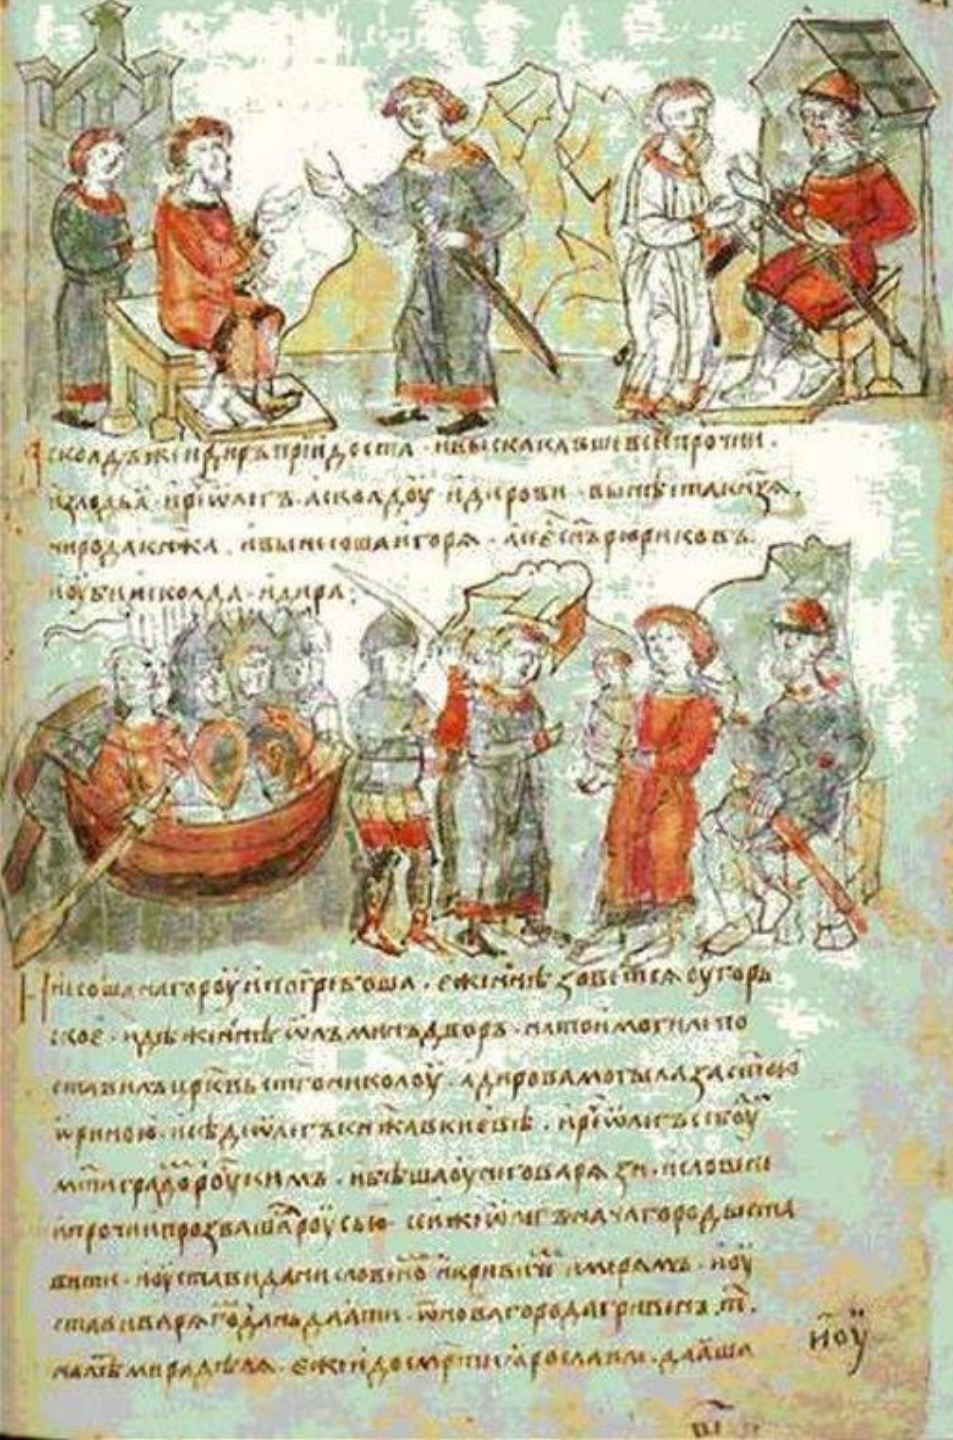 Асколдъ же и диръ придоста · и выскакавше вси прочии ·
излодьӕ · и рⷱ҇е ѡлегъ · асколдоу и дирови · вы нѣста кнѧзѧ ·
ни рода кнѧжа · и вынесоша игорѧ · а се єсть сн҃ъ рюриковъ ·
и оубиша асколда · и дира ·
И несоша на гороу и погребоша · еже нынѣ зоветсѧ оугорь
скоє · идѣже нынѣ ѡлъминъ дворъ · на тои могилѣ по
ставилъ црк҃вь ст҃го николоу · а дирова могыла за ст҃ою
ѡриною · и сѣде ѡлегъ кнѧжа в киевѣ · и рⷱ҇е ѡлегъ се боуди
мт҃и градомъ роускимъ · и бѣша оу него варѧзи · и словени
и прочи прозвашасѧ роусью · сеи же ѡлегъ нача городы ста
вити · и оустави дани словѣномъ и кривичемъ и мерѧмъ · и оу
стави варѧгомъ дань даѧти · ѿ новагорода гривенъ · т҃ ·
на лѣто мира дѣлѧ · еже и до смр҃ти ӕрославлѧ · даӕша
и оу